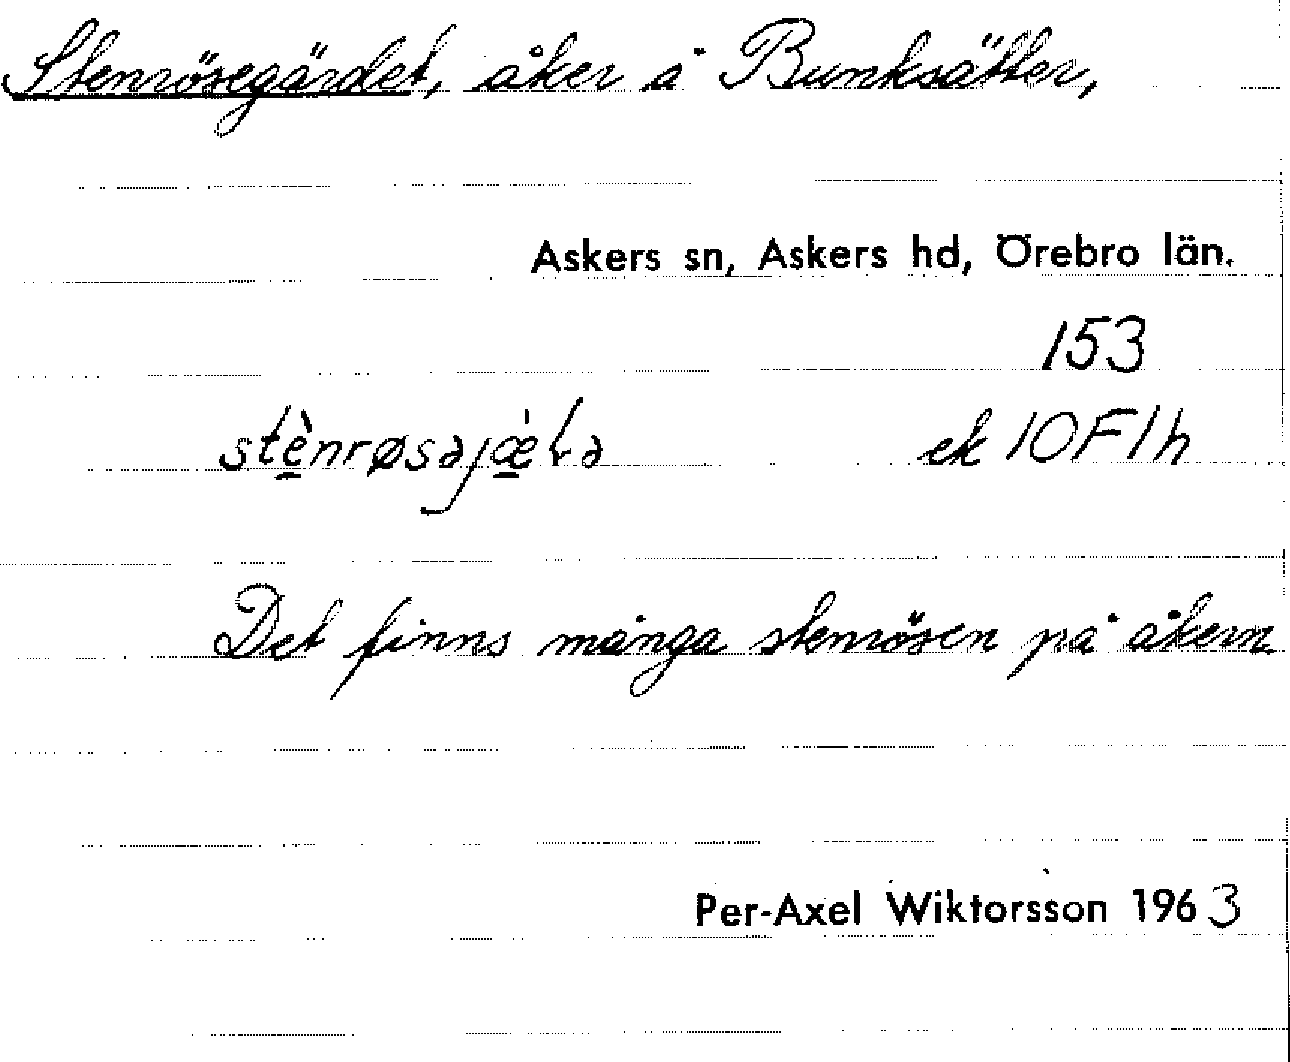 Stenrösegärdet, åker å Bunksätter,
Askers sn, Askers hd, Örebro län.
153
ek 10F1h
Det finns många stenrösen på åkern
Per-Axel Wiktorsson 1963